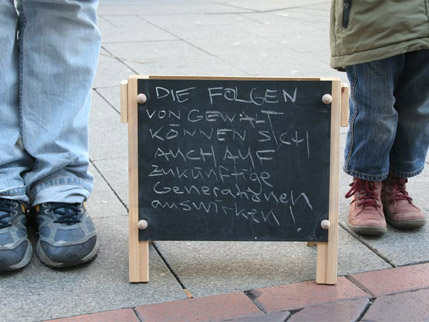 DIE FOLGEN
VON GEWALT
KÖNNEN SICH
AUCH AUF
zukünftige
Generationen
auswirken!